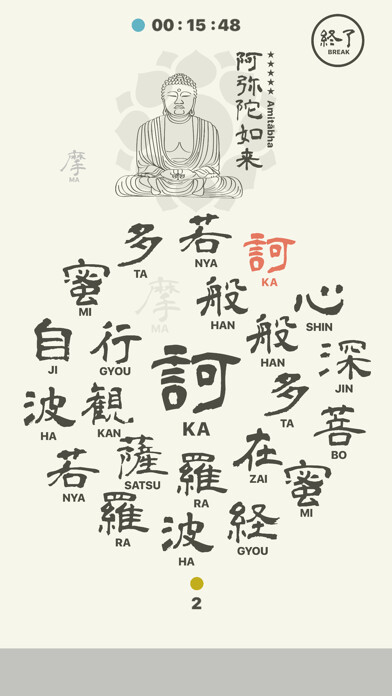 00:15:48
終了
BREAK
阿弥陀如来
★★★★★ Amitábha
摩
MA
多
TA
若
NYA
訶
KA
蜜
MI
摩
MA
般
HAN
心
SHIN
自
JI
行
GYOU
訶
KA
般
HAN
深
JIN
波
HA
観
KAN
多
TA
菩
BO
若
NYA
薩
SATSU
羅
RA
在
ZAI
蜜
MI
羅
RA
波
HA
経
GYOU
2